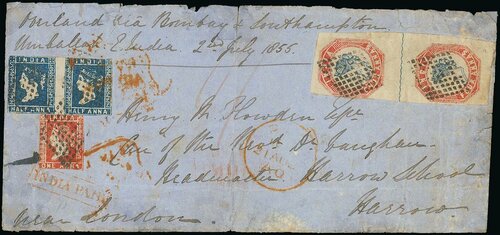 Overland via Bombay & Southampton
Umballa E. India 2nd July 1855.
INDIA
INDIA
HALF ANNA
HALF ANNA
INDIA
INDIA PAID
Henry M. Plowden Esqr.
Care of the Revd. Dr. Vaughan
Headmaster Harrow School
Harrow
near London.